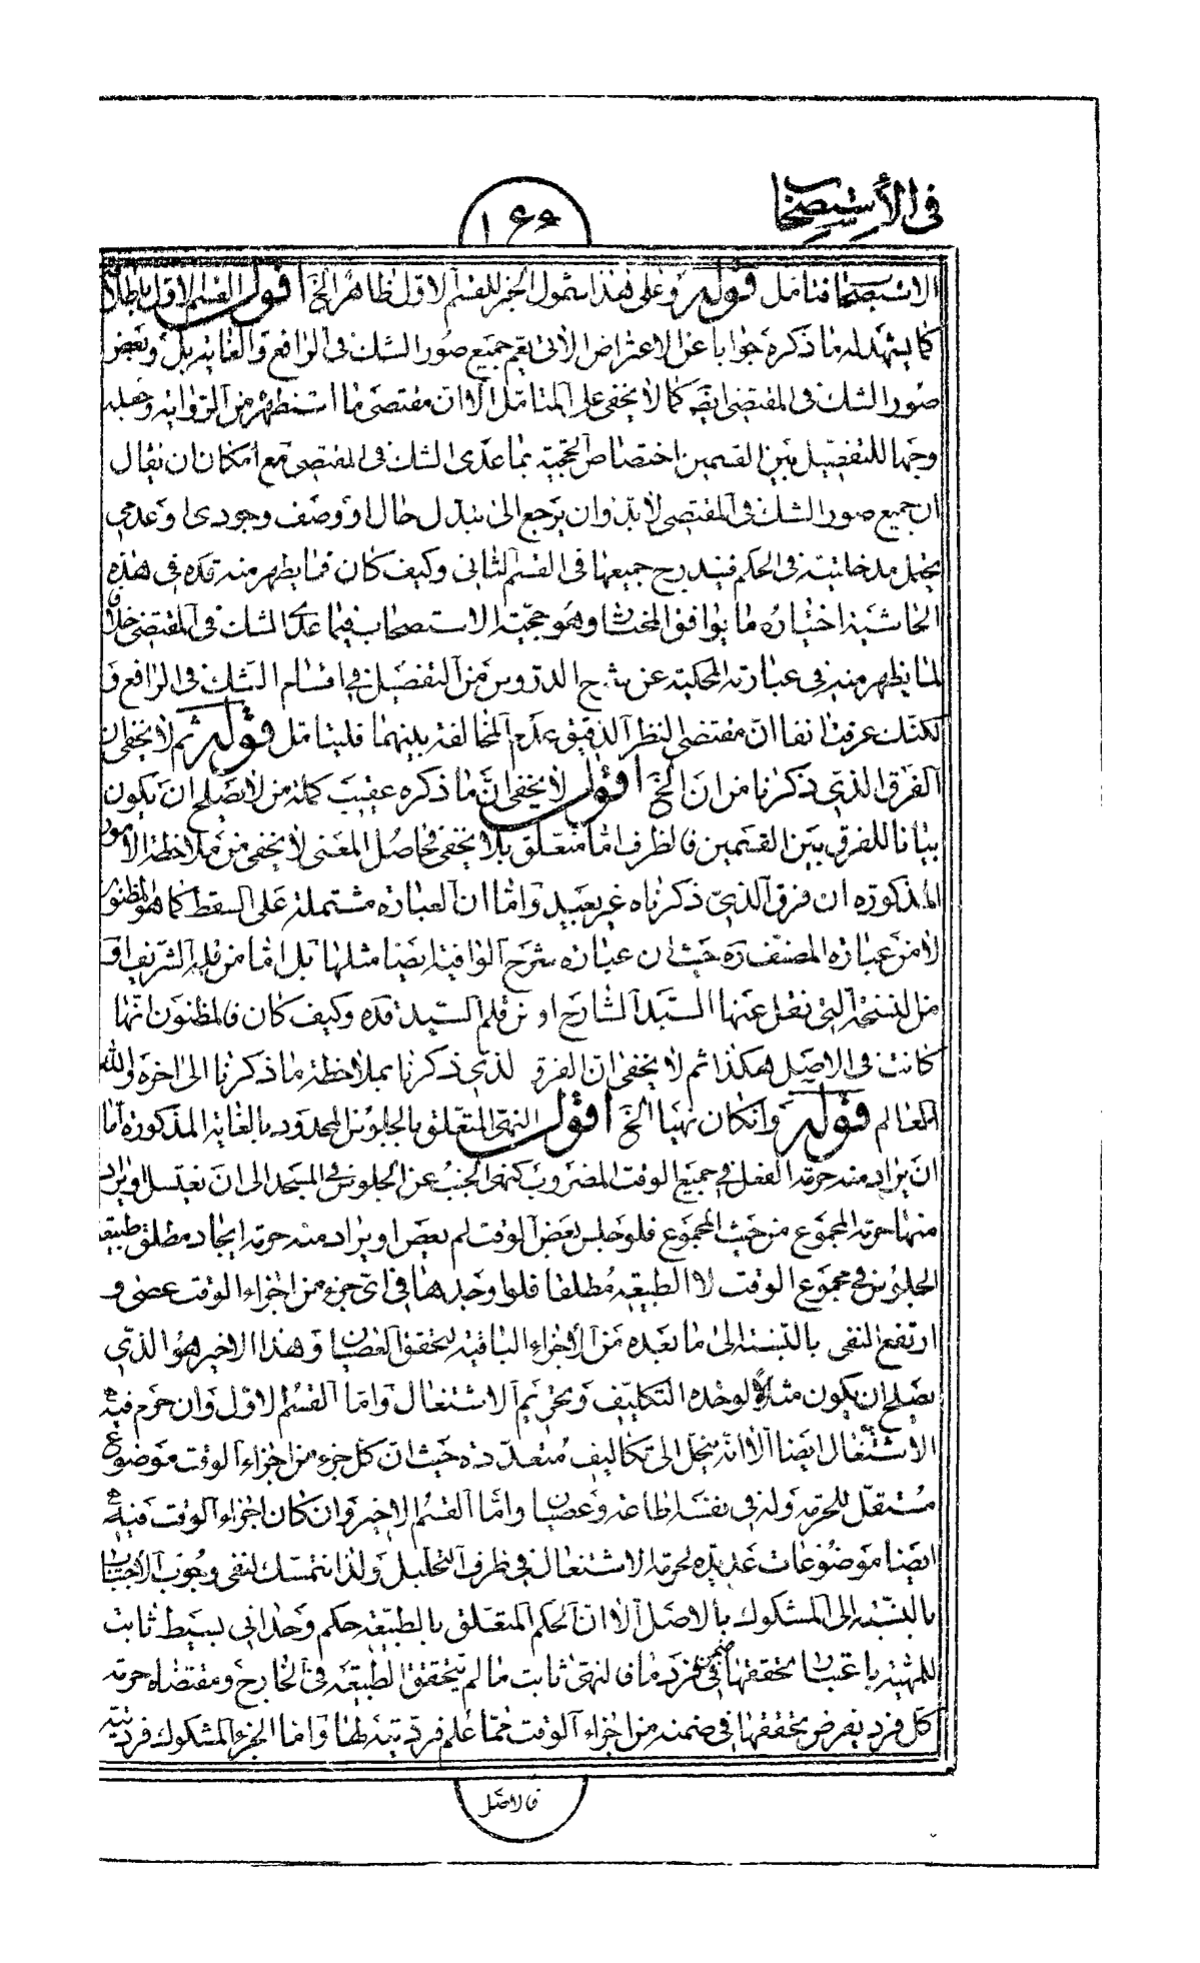 في الاستصحاب
۱۶۶
الاستصحاب فتامل قوله وعلى هذا شمول الخبر للقسم الاول ظاهر الخ اقول القسم الاول باطلاقه
كما يشهد له ما ذكره جوابا عن الاعتراض الاتى يعم جميع صور الشك فى الرافع والغاية بل وبعض
صور الشك فى المقتضى ايضه كما لا يخفى على المتامل الا ان مقتضى ما استظهره من الرواية وجعله
وجها للتفصيل بين القسمين اختصاص الحجية بما عدى الشك فى المقتضى مع امكان ان يقال
ان جميع صور الشك فى المقتضى لا بد وان يرجع الى تبدل حال او وصف وجودى او عدمي
يحتمل مدخليته فى الحكم فيندرج جميعها فى القسم الثانى وكيف كان فما يظهر منه قده فى هذه
الحاشية اختياره ما يوافق المختار وهو حجية الاستصحاب فيما عدى الشك فى المقتضى خلافا
لما يظهر منه فى عبارته المحكية عن شرح الدروس من التفصيل فى اقسام الشك فى الرافع و
لكنك عرفت انفا ان مقتضى النظر الدقيق عدم المخالفة بينهما فليتامل قوله ثم لا يخفى ان
الفرق الذى ذكرنا من ان الخ اقول لا يخفى ان ما ذكره عقيب كلمة من لا يصلح ان يكون
بيانا للفرق بين القسمين فالظرف اما متعلق بلا يخفى فحاصل المعنى لا يخفى من ملاحظة الامور
المذكورة ان فرق الذى ذكرناه غير بعيد واما ان العبارة مشتملة على السقط كما هو المظنون
لا من عبارة المصنف ره حيث ان عبارة شرح الوافية ايضا مثلها بل اما من قلمه الشريف او
من النسخة التى نقل عنها السيد الشارح او من قلم السيد قده وكيف كان فالمظنون انها
كانت فى الاصل هكذا ثم لا يخفى ان الفرق الذى ذكرنا بملاحظة ما ذكرنا الى اخره والله
العالم قوله وان كان نهيا الخ اقول النهى المتعلق بالجلوس المحدود بالغاية المذكورة اما
ان يراد منه حرمة الفعل فى جميع الوقت المضروب كنهى الجنب عن الجلوس فى المسجد الى ان يغتسل او يراد
منها حرمة المجموع من حيث المجموع فلو جلس بعض الوقت لم يعص او يراد منه حرمة ايجاد مطلق طبيعة
الجلوس فى مجموع الوقت لا الطبيعة مطلقا فلو اوجدها فى اى جزء من اجزاء الوقت عصى و
ارتفع النهى بالنسبة الى ما بعده من الاجزاء الباقية لتحقق العصيان وهذا الاخير هو الذى
يصلح ان يكون مثالا لوحدة التكليف وتحريم الاشتغال واما القسم الاول وان حرم فيه
الاشتغال ايضا الا انه ينحل الى تكاليف متعددة حيث ان كل جزء من اجزاء الوقت موضوع
مستقل للحرمة وله فى نفسه اطاعة وعصيان واما القسم الاخير وان كان اجزاء الوقت فيه
ايضا موضوعات عديدة لحرمة الاشتغال فى ظرف التحليل ولذا نتمسك لنفى وجوب الاجتناب
بالنسبة الى المشكوك بالاصل الا ان الحكم المتعلق بالطبيعة حكم وحدانى بسيط ثابت
للمهية باعتبار تحققها فى ضمن فرد ما فالنهى ثابت ما لم يتحقق الطبيعة فى الخارج ومقتضاه حرمة
كل فرد يفرض تحققها فى ضمنه من اجزاء الوقت مما علم فرديته لها واما الجزء المشكوك فرديته
فالاصل